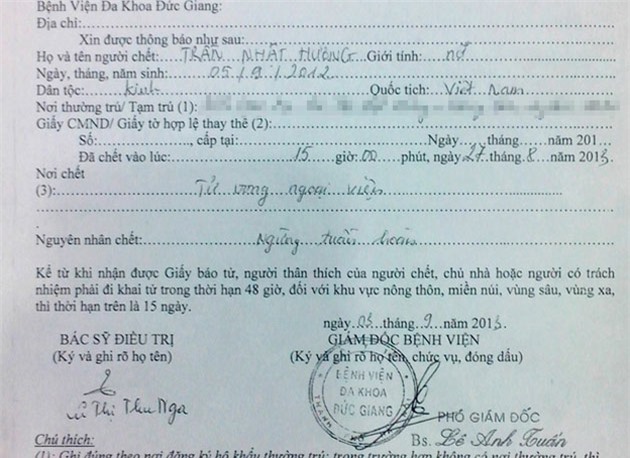 Bệnh Viện Đa Khoa Đức Giang:
Địa chỉ:
Xin được thông báo như sau:
Họ và tên người chết: TRẦN NHẬT HƯƠNG Giới tính: nữ
Ngày, tháng, năm sinh: 05/9/2012
Dân tộc: Kinh Quốc tịch: Việt Nam
Nơi thường trú/ Tạm trú (1):
Giấy CMND/ Giấy tờ hợp lệ thay thế (2):
Số:, cấp tại: Ngày.... tháng...... năm 201...
Đã chết vào lúc: 15 giờ: 00 phút, ngày 27 tháng 8 năm 2013
Nơi chết
(3): Tử vong ngoại viện
Nguyên nhân chết: Ngừng tuần hoàn
Kể từ khi nhận được Giấy báo tử, người thân thích của người chết, chủ nhà hoặc người có trách
nhiệm phải đi khai tử trong thời hạn 48 giờ, đối với khu vực nông thôn, miền núi, vùng sâu, vùng xa,
thì thời hạn trên là 15 ngày.
ngày 03 tháng 9 năm 2013
BÁC SỸ ĐIỀU TRỊ GIÁM ĐỐC BỆNH VIỆN
(Ký và ghi rõ họ tên) (Ký và ghi rõ họ tên, chức vụ, đóng dấu)
BỆNH VIỆN
ĐA KHOA
ĐỨC GIANG
Thị Thu Nga
PHÓ GIÁM ĐỐC
Bs. Lê Anh Tuấn
Chú thích:
(1): Ghi đúng theo nơi đăng ký hộ khẩu thường trú; trong trường hợp không có nơi thường trú, thì